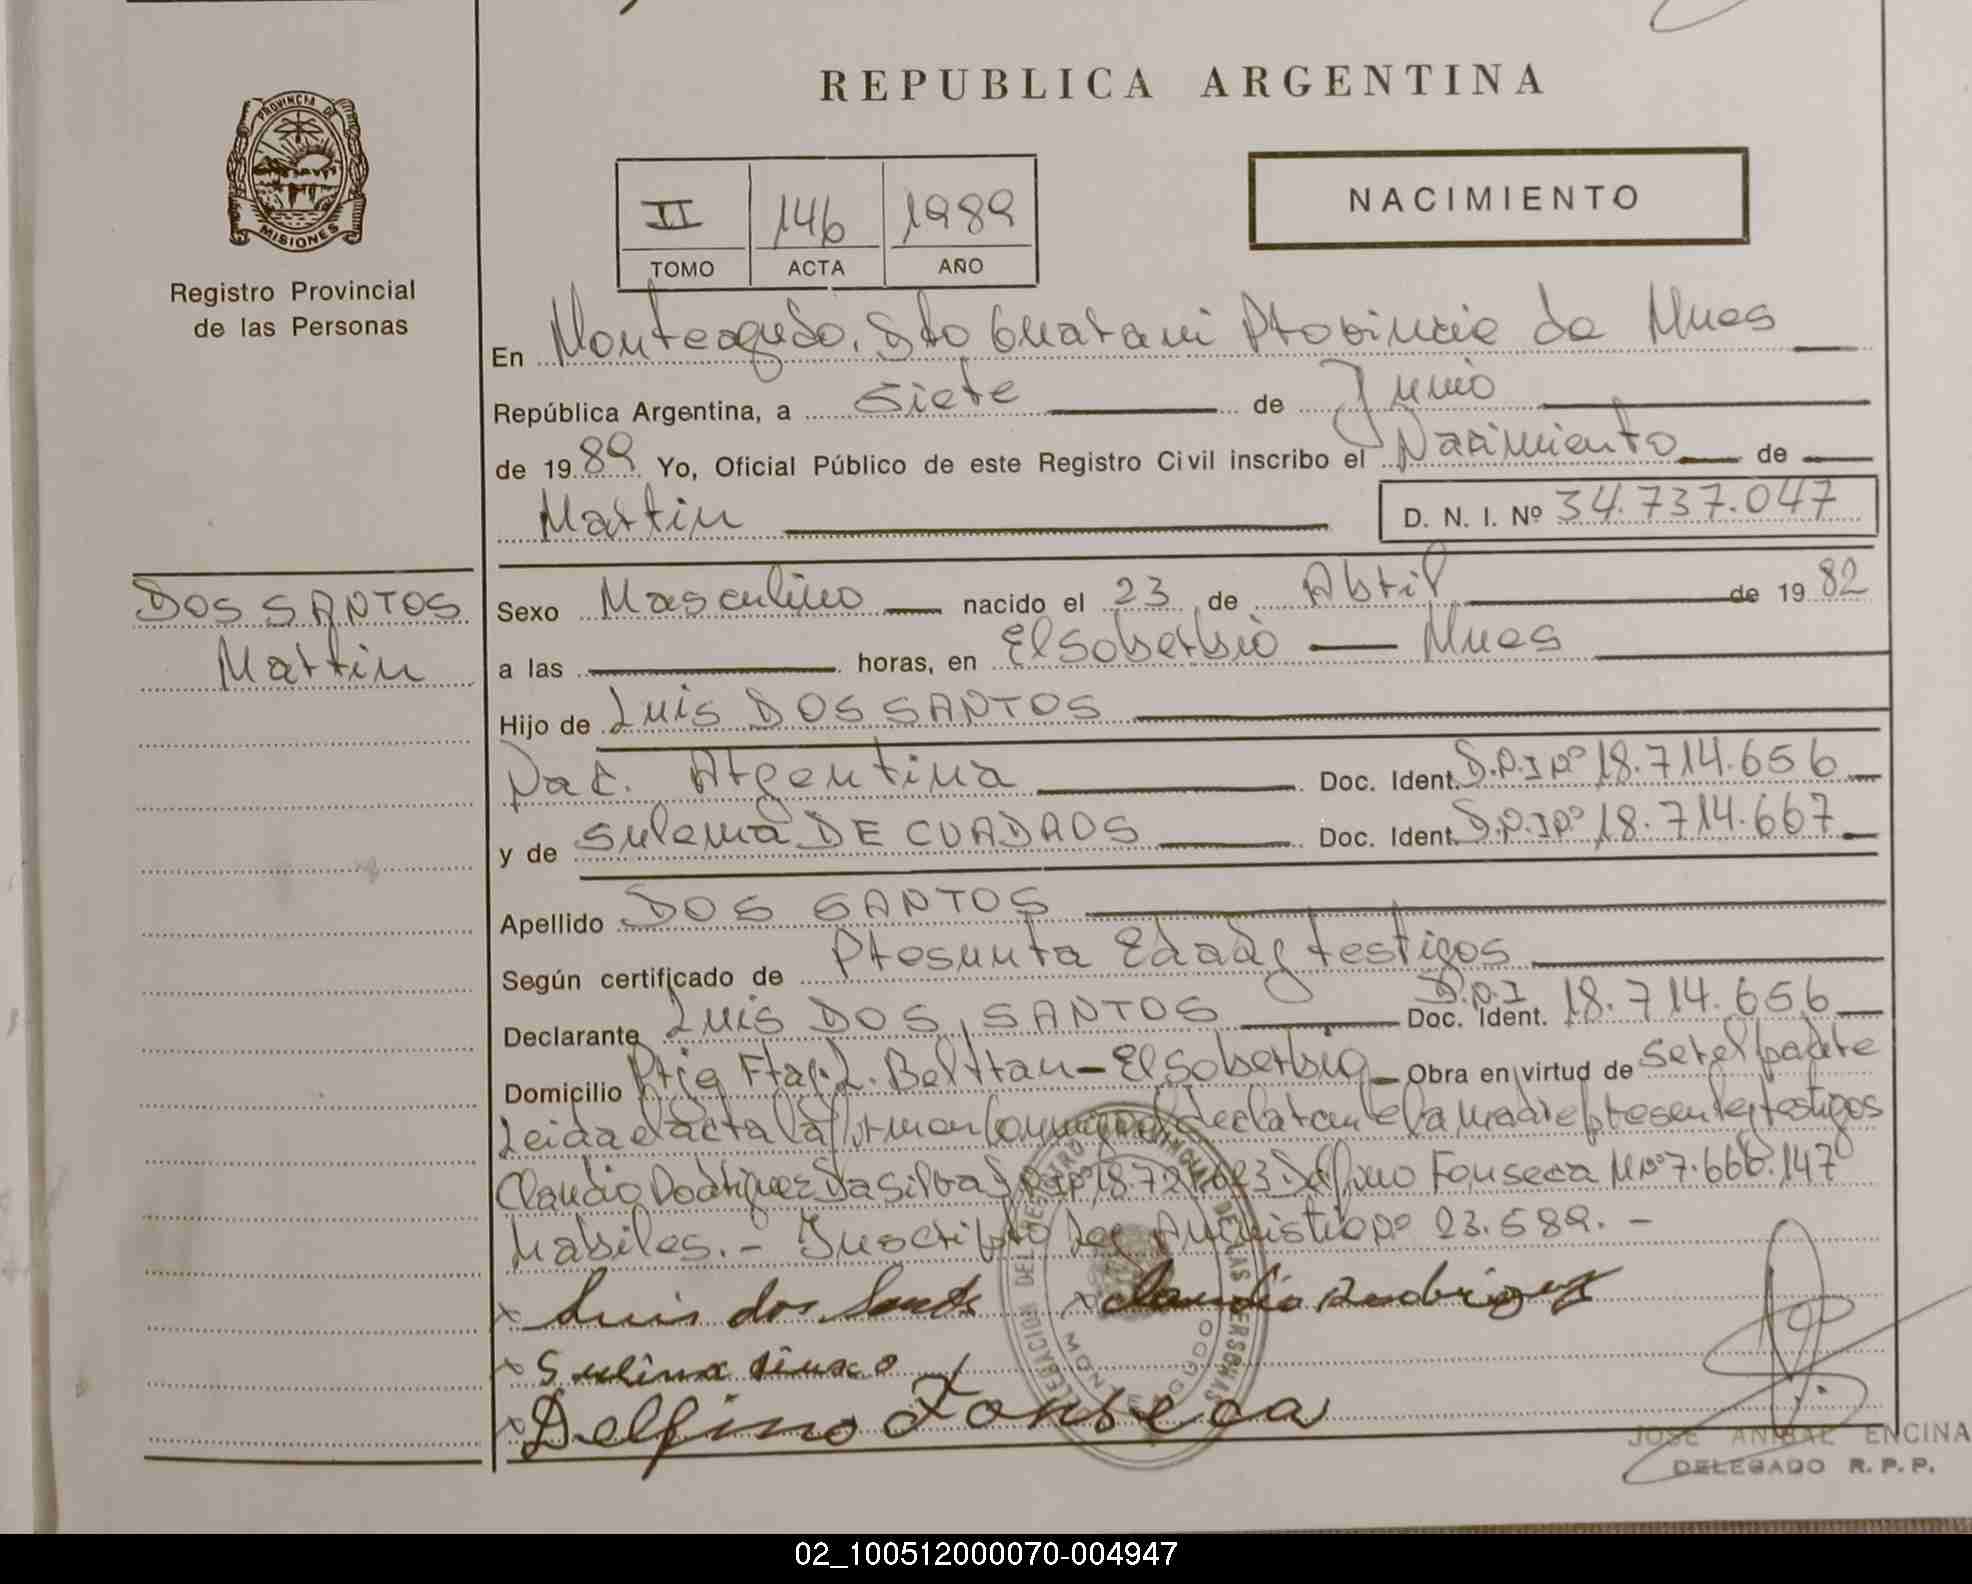 REPUBLICA ARGENTINA
PROVINCIA DE
MISIONES
Registro Provincial
de las Personas
II 146 1989
TOMO ACTA AÑO
NACIMIENTO
En Monteagudo, Gto Guarani Provincia de Mnes
República Argentina, a siete de Junio
de 1989 Yo, Oficial Público de este Registro Civil inscribo el Nacimiento de
Martin D. N. I. Nº 34.737.047
DOS SANTOS
Martin
Sexo Masculino nacido el 23 de Abril de 1982
a las horas, en El Soberbio Mnes
Hijo de Luis DOS SANTOS
Nac. Argentina Doc. Ident. D.N.I Nº 18.714.656
y de Sulema DE CUADROS Doc. Ident. D.N.I Nº 18.714.667
Apellido DOS SANTOS
Según certificado de Presunta Edad y testigos
Declarante Luis DOS SANTOS Doc. Ident. D.N.I 18.714.656
Domicilio Ptje Frac. L. Beltran - El Soberbio Obra en virtud de ser el padre
Leida el acta la firman conmigo el declarante la madre presente y testigos
Claudio Rodriguez Da Silva D.N.I Nº 18.72 623 Delfino Fonseca M.Nº 7.666.147
habiles.- Inscripto Ley Amnistia Nº 23.589.-
x Luis dos Santos x Claudio Rodriguez
x
x Delfino Fonseca
DELEGACION DEL REGISTRO PROVINCIAL DE LAS PERSONAS
JOSE ANIBAL ENCINA
DELEGADO R. P. P.
02_100512000070-004947